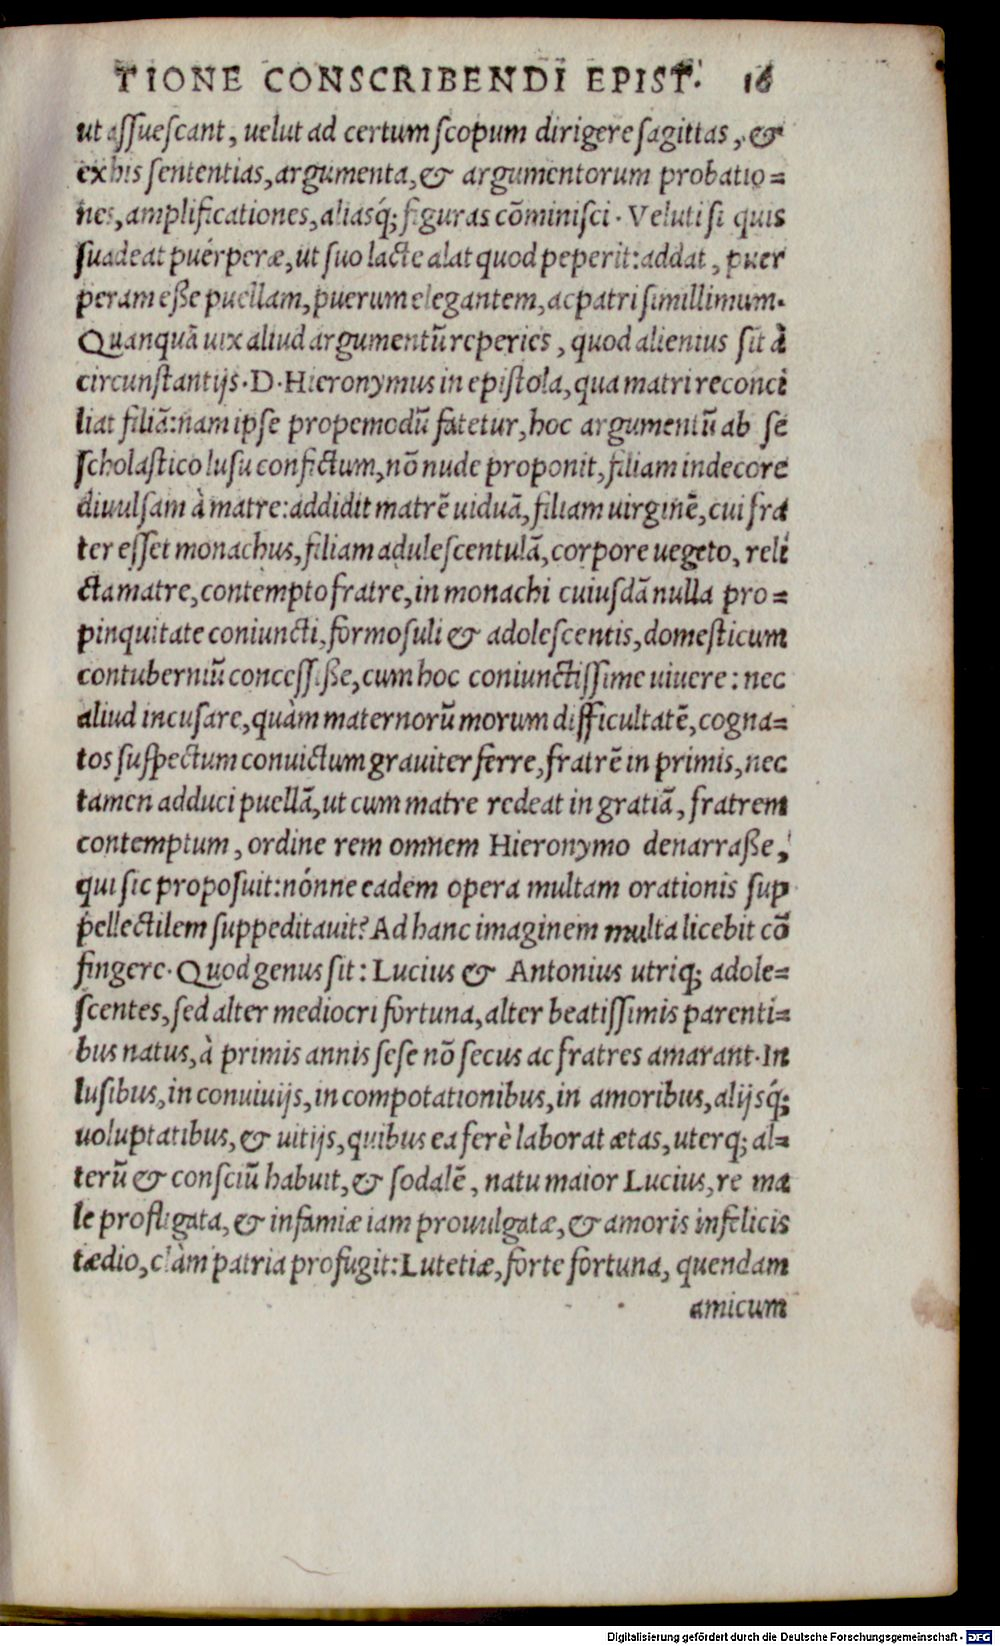 TIONE CONSCRIBENDI EPIST. 16
ut assuescant, uelut ad certum scopum dirigere sagittas, &
ex his sententias, argumenta, & argumentorum probatio=
nes, amplificationes, aliasq́; figuras cōminisci. Veluti si quis
suadeat puérperæ, ut suo lacte alat quod peperit: addat, puer
peram eße puellam, puerum elegantem, ac patri simillimum.
Quanquā uix aliud argumentū reperies, quod alienius sit à
circunstantijs. D. Hieronymus in epistola, qua matri reconci
liat filiā: nam ipse propemodū fatetur, hoc argumentū ab se
scholastico lusu confictum, nō nude proponit, filiam indecore
diuulsam à matre: addidit matrē uiduā, filiam uirginē, cui fra
ter esset monachus, filiam adulescentulā, corpore uegeto, reli
cta matre, contempto fratre, in monachi cuiusdā nulla pro=
pinquitate coniuncti, formosuli & adolescentis, domesticum
contuberniū concessiße, cum hoc coniunctissime uiuere: nec
aliud incusare, quàm maternorū morum difficultatē, cogna=
tos suspectum conuictum grauiter ferre, fratrē in primis, nec
tamen adduci puellā, ut cum matre redeat in gratiā, fratrem
contemptum, ordine rem omnem Hieronymo denarraße,
qui sic proposuit: nónne eadem opera multam orationis sup
pellectilem suppeditauit? Ad hanc imaginem multa licebit cō
fingere. Quod genus sit: Lucius & Antonius utriq; adole=
scentes, sed alter mediocri fortuna, alter beatissimis parenti=
bus natus, à primis annis sese nō secus ac fratres amarant. In
lusibus, in conuiuijs, in compotationibus, in amoribus, alijsq́;
uoluptatibus, & uitijs, quibus ea ferè laborat ætas, uterq; al=
terū & consciū habuit, & sodalē, natu maior Lucius, re ma
le profligata, & infamiæ iam prouulgatæ, & amoris infelicis
tædio, clàm patria profugit: Lutetiæ, forte fortuna, quendam
amicum
Digitalisierung gefördert durch die Deutsche Forschungsgemeinschaft - DFG